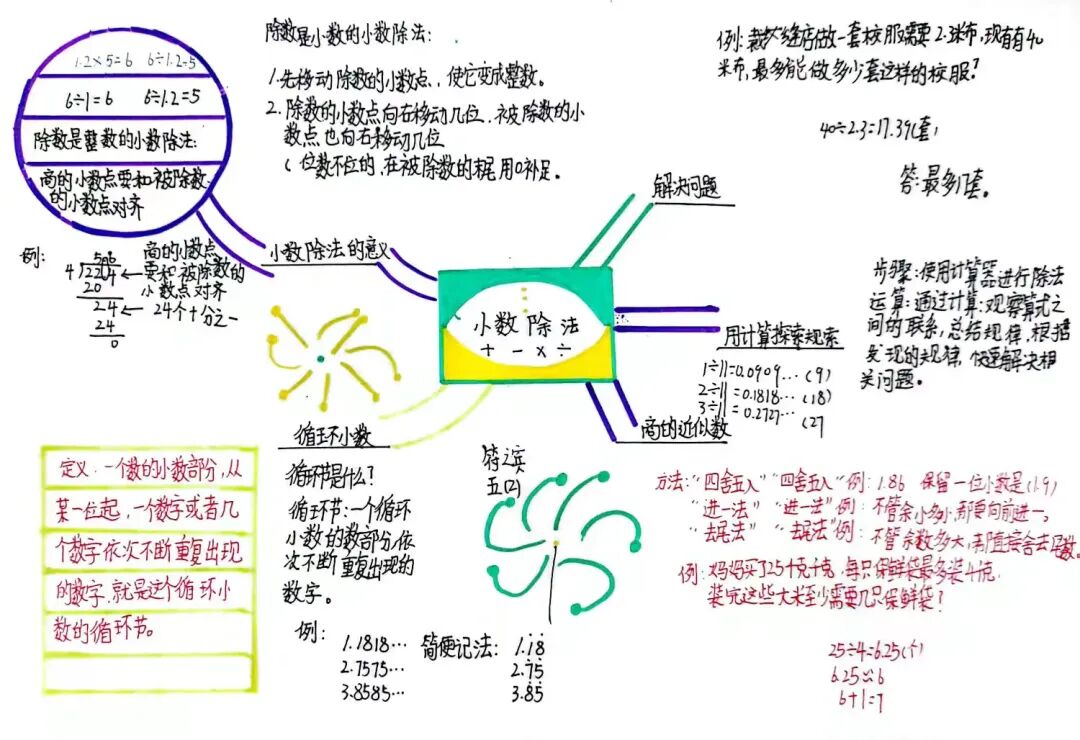 1.2×5=6 6÷1.2=5
6÷1=6 6÷1.2=5
除数是整数的小数除法:
高的小数点要和被除数
的小数点对齐
除数是小数的小数除法:
1.先移动除数的小数点,使它变成整数。
2.除数的小数点向右移动几位,被除数的小
数点也向右移动几位
(位数不位的,在被除数的末尾用0补足。
例:裁缝店做一套校服需要2.3米布,现有有40
米布,最多能做多少套这样的校服?
40÷2.3=17.39(套)
答:最多17套。
解决问题
小数除法的意义
例:
5.6
4 22.4
20
24
24
0
高的小数点
要和被除数的
小数点对齐
24个十分之一
小数除法
+ - × ÷
步骤:使用计算器进行除法
运算:通过计算:观察算式之
间的联系,总结规律,根据
发现的规律,快速解决相
关问题。
用计算探索规索
1÷11=0.0909...(9)
2÷11=0.1818...(18)
3÷11=0.2727...(27
高的近似数
循环小数
定义:一个数的小数部分,从
某一位起,一个数字或者几
个数字依次不断重复出现
的数字,就是这个循环小
数的循环节。
循环节是什么?
循环节:一个循环
小数的数部分,依
次不断重复出现的
数字。
例:
1.1818...
2.7575...
3.8585...
简便记法:
1.1̇8̇
2.7̇5̇
3.8̇5̇
方法:“四舍五入”“四舍五入”例:1.86 保留一位小数是(1.9)
“进一法”“进一法”例:不管余小多小,都要向前进一。
“去尾法”“去尾法”例:不管余数多大,都直接舍去尾数。
例:妈妈买了25千克千克,每只保鲜袋最多装4千克,
装完这些大米至少需要几只保鲜袋?
25÷4=6.25(个)
6.25≈6
6+1=7